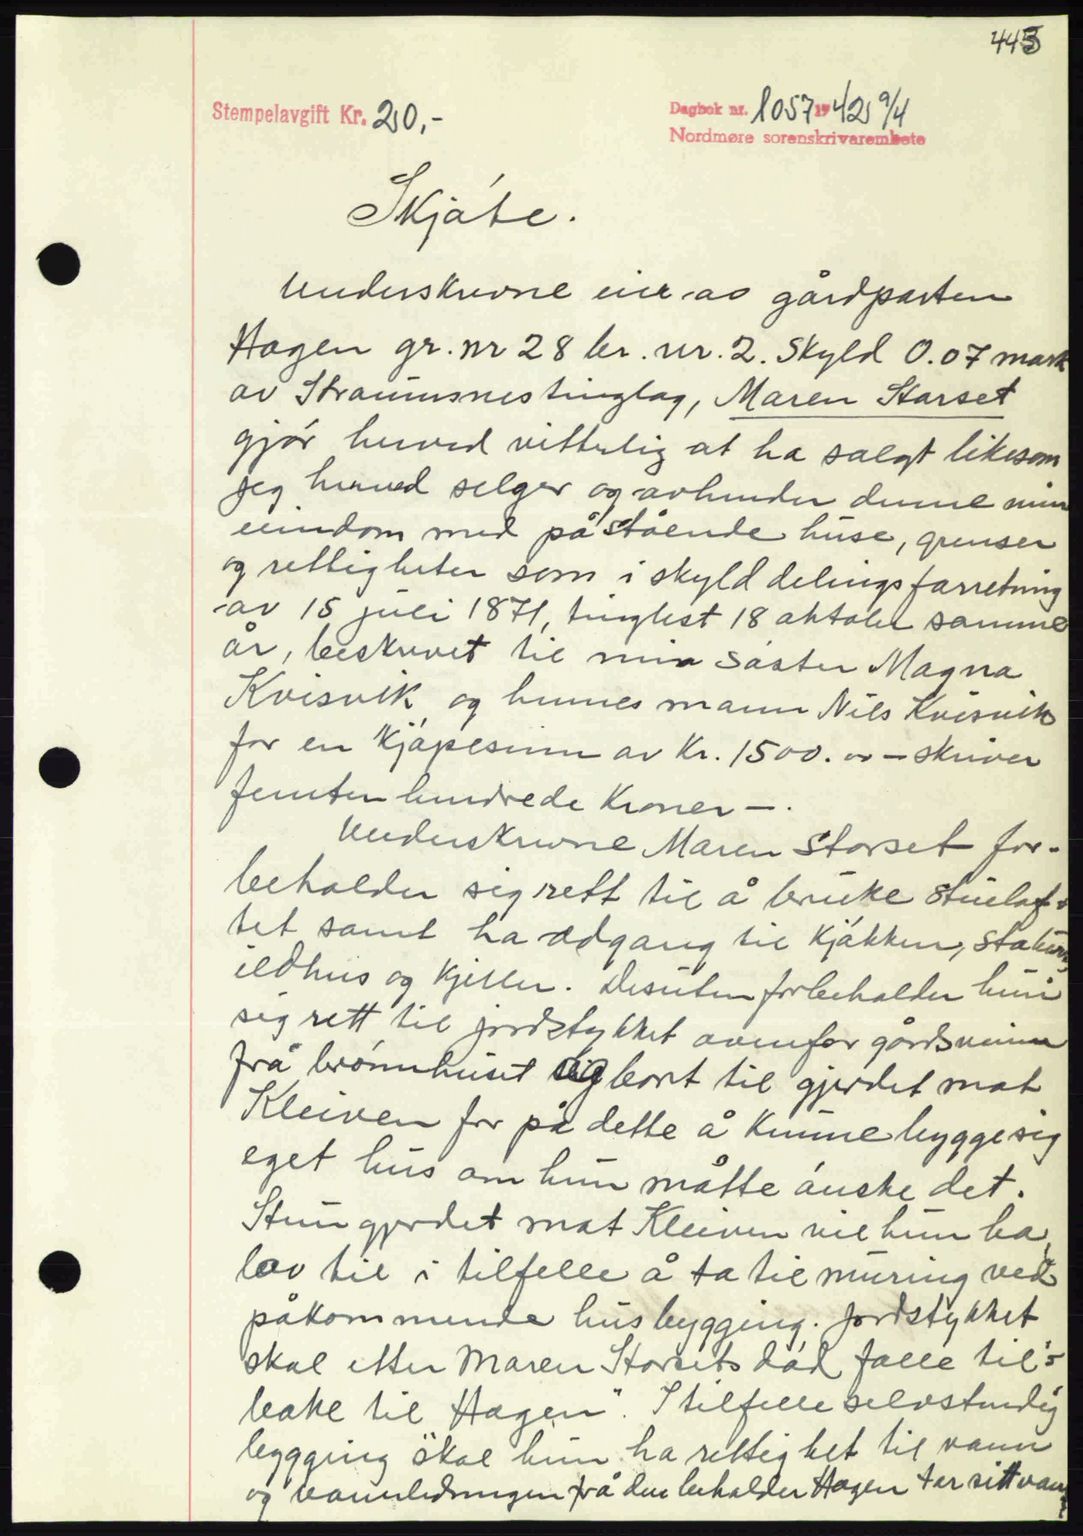 443
Stempelavgift Kr. 20,-
Dagbok nr. 1057 1942 9/4
Nordmøre sorenskrivarembete
Skjøte.
Underskrevne eier av gårdparten
Hagen gr. nr 28 br. nr. 2. Skyld 0.07 mark
av Straumsnes tinglag, Maren Storset
gjør herved vitterlig at ha solgt likesom
jeg herved selger og avhender denne min
eiendom med påstående huse, grenser
og rettigheter som i skylddelingsforretning
av 15 juli 1871, tinglest 18 oktober samme
år, beskrevet til min søster Magna
Kvisvik og hennes mann Nils Kvisvik
for en kjøpesum av Kr. 1500.00 — skriver
femten hundrede Kroner —.
Underskrevne Maren Storset for-
beholder sig rett til å bruke stuelof-
tet samt ha adgang til kjøkken, stabur,
ildhus og kjeller. Desuten forbeholder hun
sig rett til jordstykket ovenfor gårdsveien
frå brønnhuset og bort til gjerdet mot
Kleiven for på dette å kunne bygge sig
eget hus om hun måtte ønske det.
Stengjerdet mot Kleiven vil hun ha
lov til i tilfelle å ta til muring ved
påkommende husbygging. Jordstykket
skal etter Maren Storsets død falle til-
bake til "Hagen". I tilfelle selvstendig
bygging skal hun ha rettighet til vann
og vannledningen frå den beholder Hagen tar sitt vann